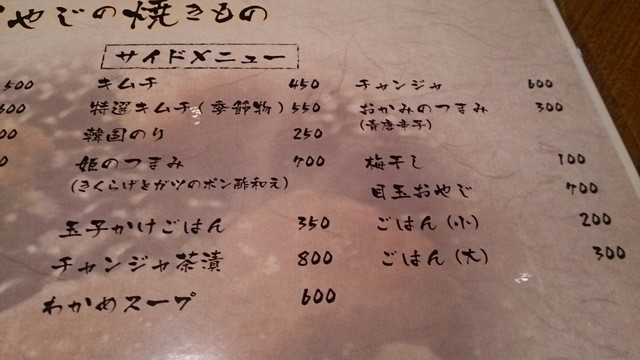 やじの焼きもの
サイドメニュー
500
キムチ 450
チャンジャ 600
特選キムチ(季節物) 550
おかみのつまみ 300
(青唐辛子)
韓国のり 250
姫のつまみ 700
(きくらげとガツのポン酢和え)
梅干し 100
目玉おやじ 700
玉子かけごはん 350
ごはん(小) 200
チャンジャ茶漬 800
ごはん(大) 300
わかめスープ 600